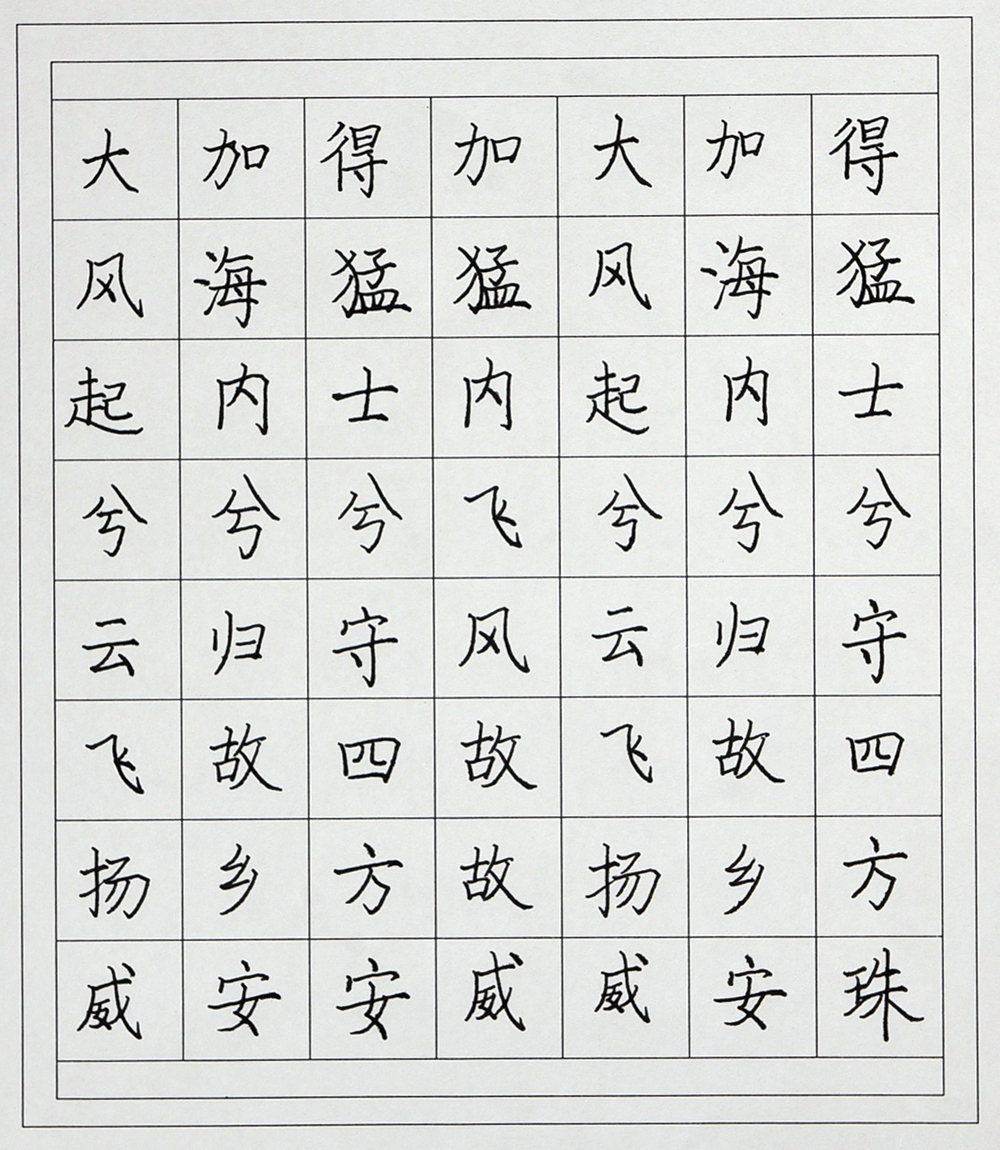 大风起兮云飞扬威
加海内兮归故乡安
得猛士兮守四方安
加猛内飞风故故威
大风起兮云飞扬威
加海内兮归故乡安
得猛士兮守四方珠